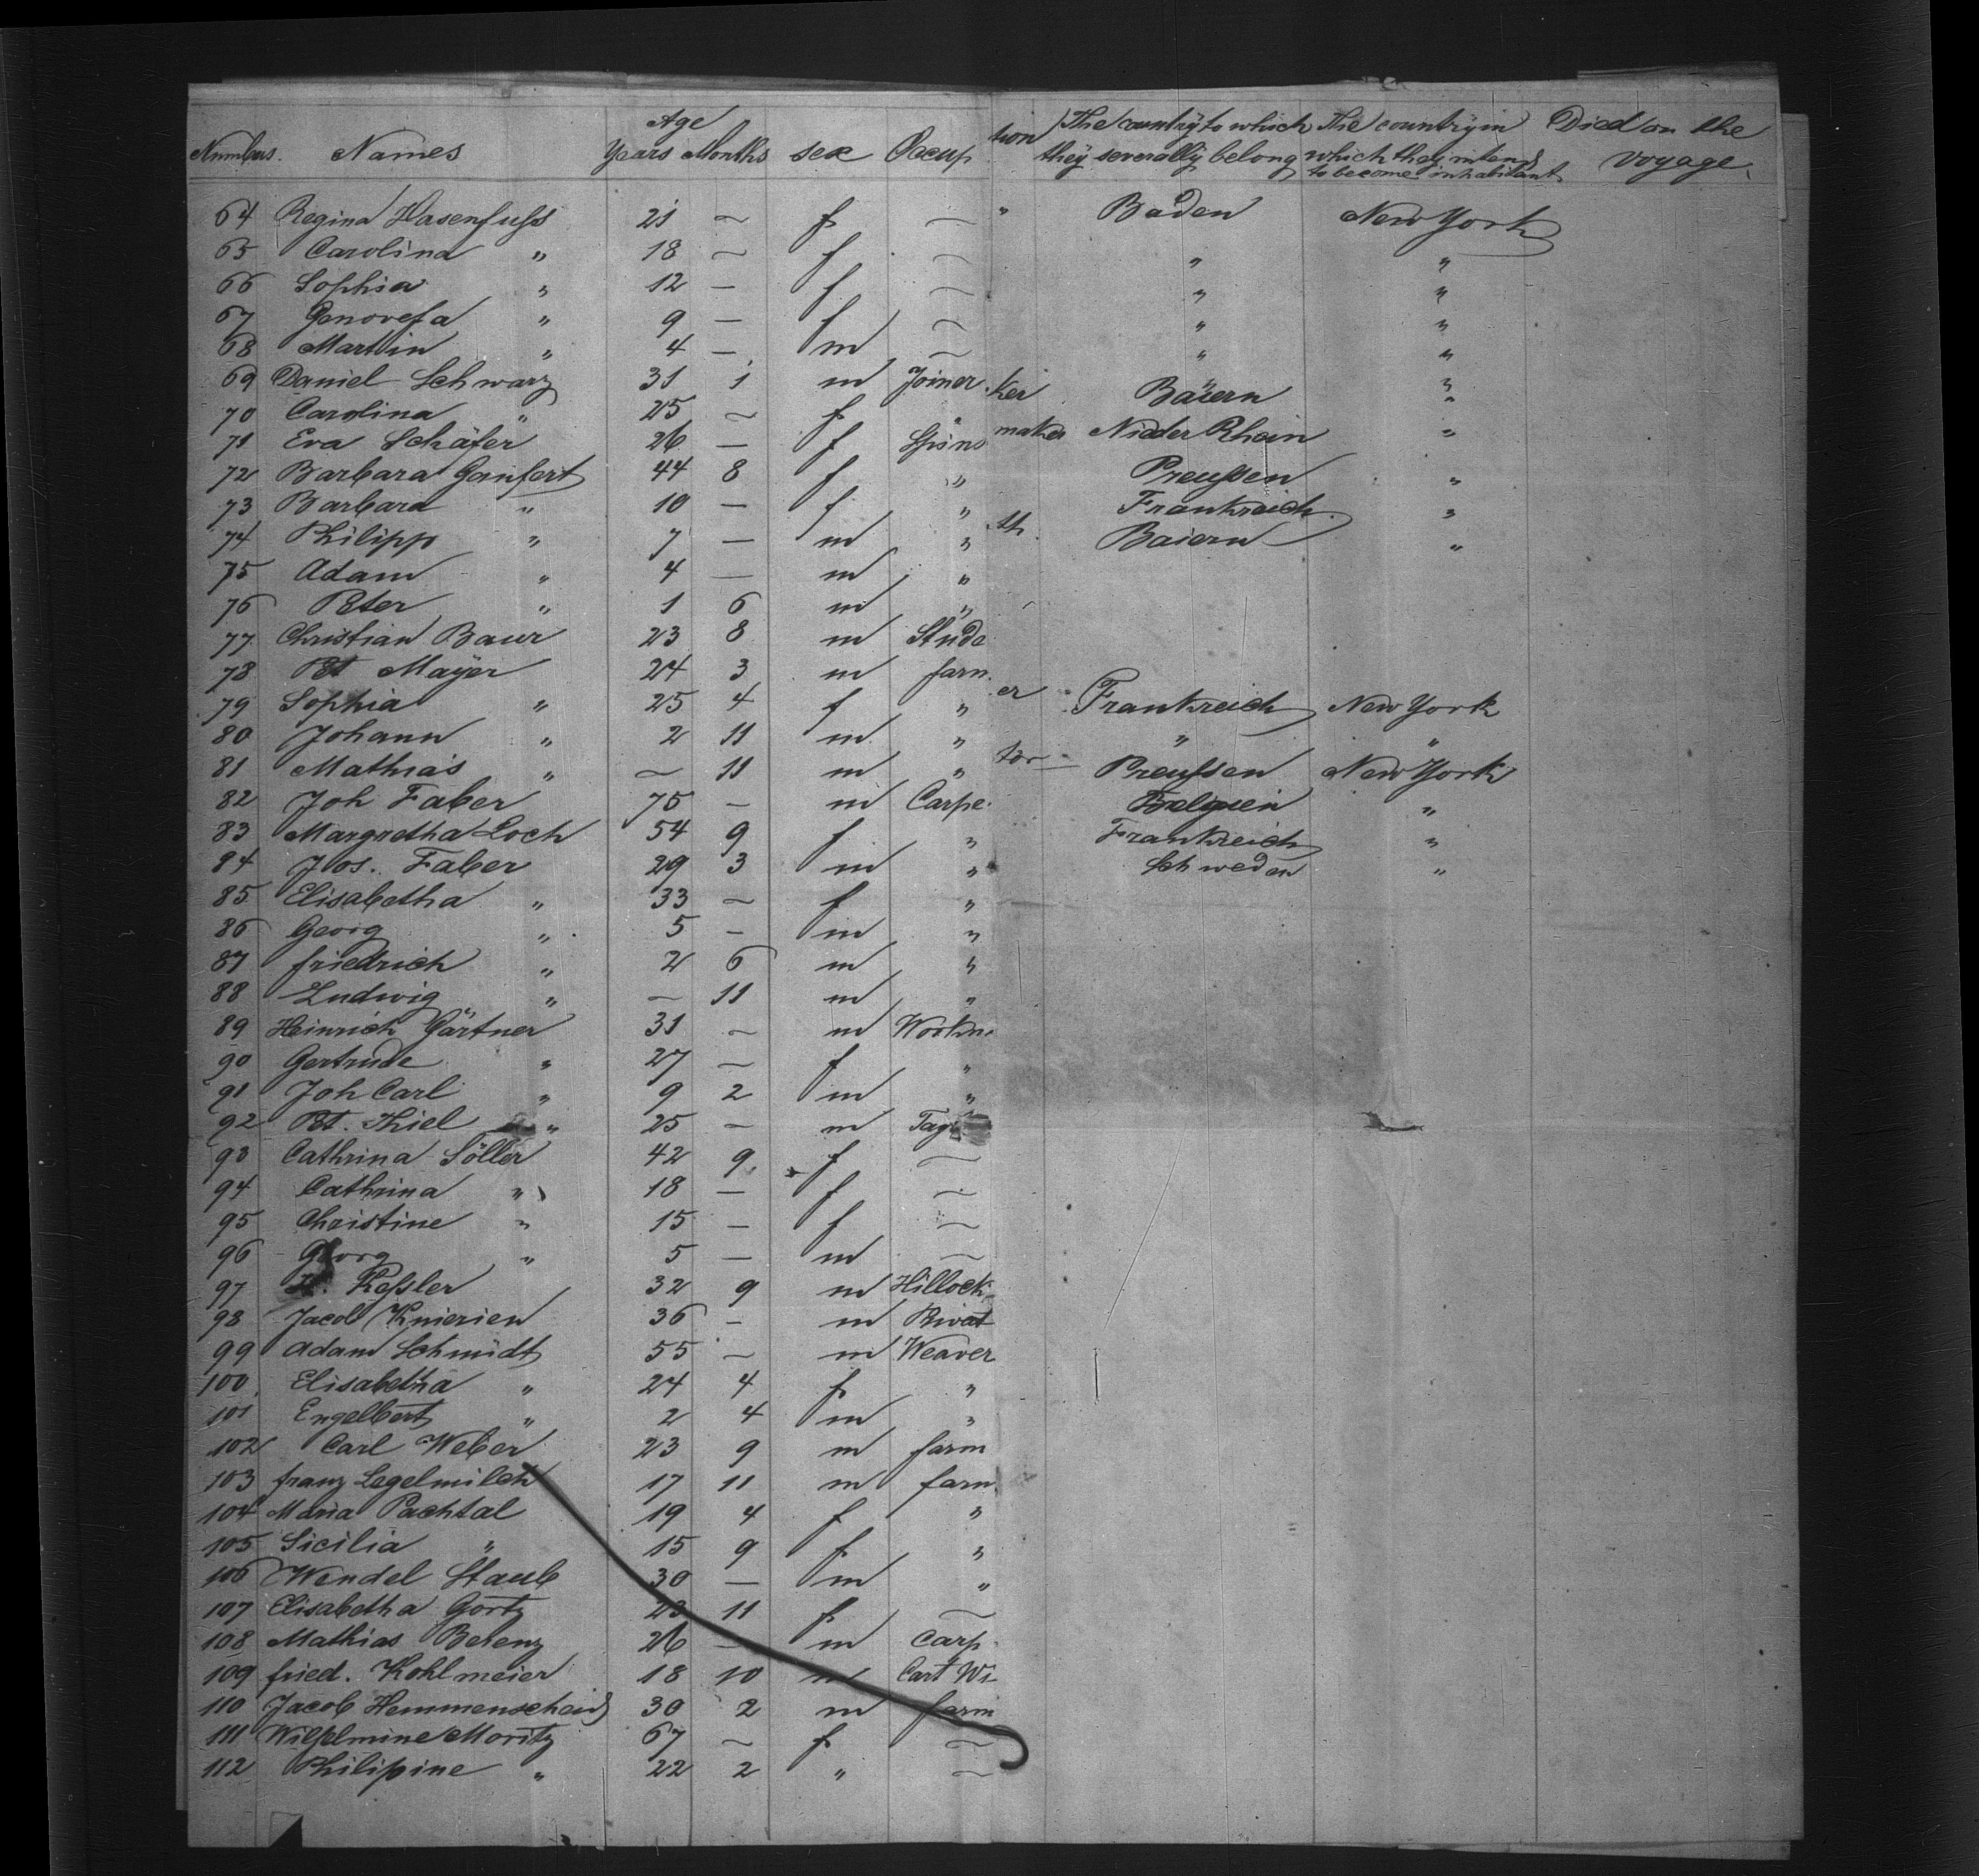 Numbers. Names Age Years Months sex Occup tion The country to which they severally belong The country in which they intend to become inhabitant Died on the voyage.
64 Regina Hasenfuss 21 — f — " Baden New York
65 Carolina " 18 — f — " "
66 Sophia " 12 — f — " "
67 Genovefa " 9 — f — " "
68 Martin " 4 — m — " "
69 Daniel Schwarz 31 1 m Joiner ker " "
70 Carolina " 25 — f " Baiern "
71 Eva Schäfer 26 — f Spins maker Nieder Rhein "
72 Barbara Ganfert 44 8 f " Preussen "
73 Barbara " 10 — f " Frankreich "
74 Philipp " 7 — m " th. Baiern "
75 Adam " 4 — m "
76 Peter " 1 6 m "
77 Christian Baur 23 8 m Stude
78 Pet Mayer 24 3 m farm
79 Sophia " 25 4 f " er Frankreich New York
80 Johann " 2 11 m " " "
81 Mathias " — 11 m " tor — Preussen New York
82 Joh Faber 75 — m Carpe. Belgien "
83 Margretha Loch 54 9 f " Frankreich "
84 Jos. Faber 29 3 m " Schweden "
85 Elisabetha " 33 — f "
86 Georg " 5 — m "
87 friedrich " 2 6 m "
88 Ludwig " — 11 m "
89 Heinrich Gärtner 31 — m
90 Gertrude " 27 — f "
91 Joh Carl " 9 2 m "
92 Pet. Thiel " 25 — m Tag
93 Cathrina Söller 42 9. f —
94 Cathrina " 18 — f —
95 Christine " 15 — f —
96 Georg " 5 — m —
97 Kessler 32 9 m Hillock
98 Jacob Knierien 36 — m Privat
99 Adam Schmidt 55 — m Weaver
100 Elisabetha " 24 4 f "
101 Engelbert " 2 4 m "
102 Carl Weber 23 9 m farm
103 franz Legelmilch 17 11 m farm
104 Maria Pachtal 19 4 f "
105 Sicilia " 15 9 f "
106 Wendel Staub 30 — m "
107 Elisabetha Gortz 23 11 f —
108 Mathias Berenz 26 — m Carp.
109 fried. Kohlmeier 18 10 m Cart Wi
110 Jacob Hemmenscheid 30 2 m farm
111 Wilhelmine Moritz 67 — f —
112 Philipine " 22 2 " —